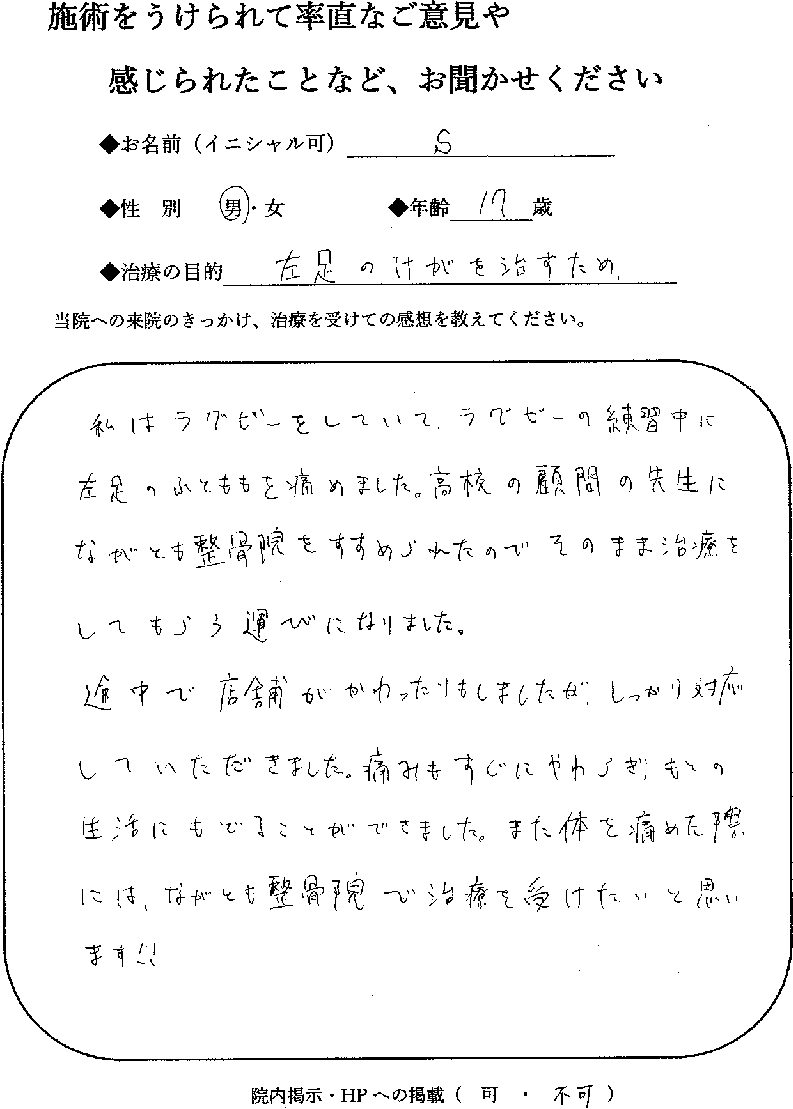 施術をうけられて率直なご意見や
感じられたことなど、お聞かせください
◆お名前（イニシャル可） S
◆性　別　男・女　◆年齢 17 歳
◆治療の目的 左足のけがを治すため、
当院への来院のきっかけ、治療を受けての感想を教えてください。
私はラグビーをしていて、ラグビーの練習中に
左足のふとももを痛めました。高校の顧問の先生に
ながとも整骨院をすすめられたのでそのまま治療を
してもらう運びになりました。
途中で店舗がかわったりもしましたが、しっかり対応
していただきました。痛みもすぐにやわらぎ、もとの
生活にもどることができました。また体を痛めた際
には、ながとも整骨院で治療を受けたいと思い
ます!!
院内掲示・HPへの掲載（　可　・　不可　）